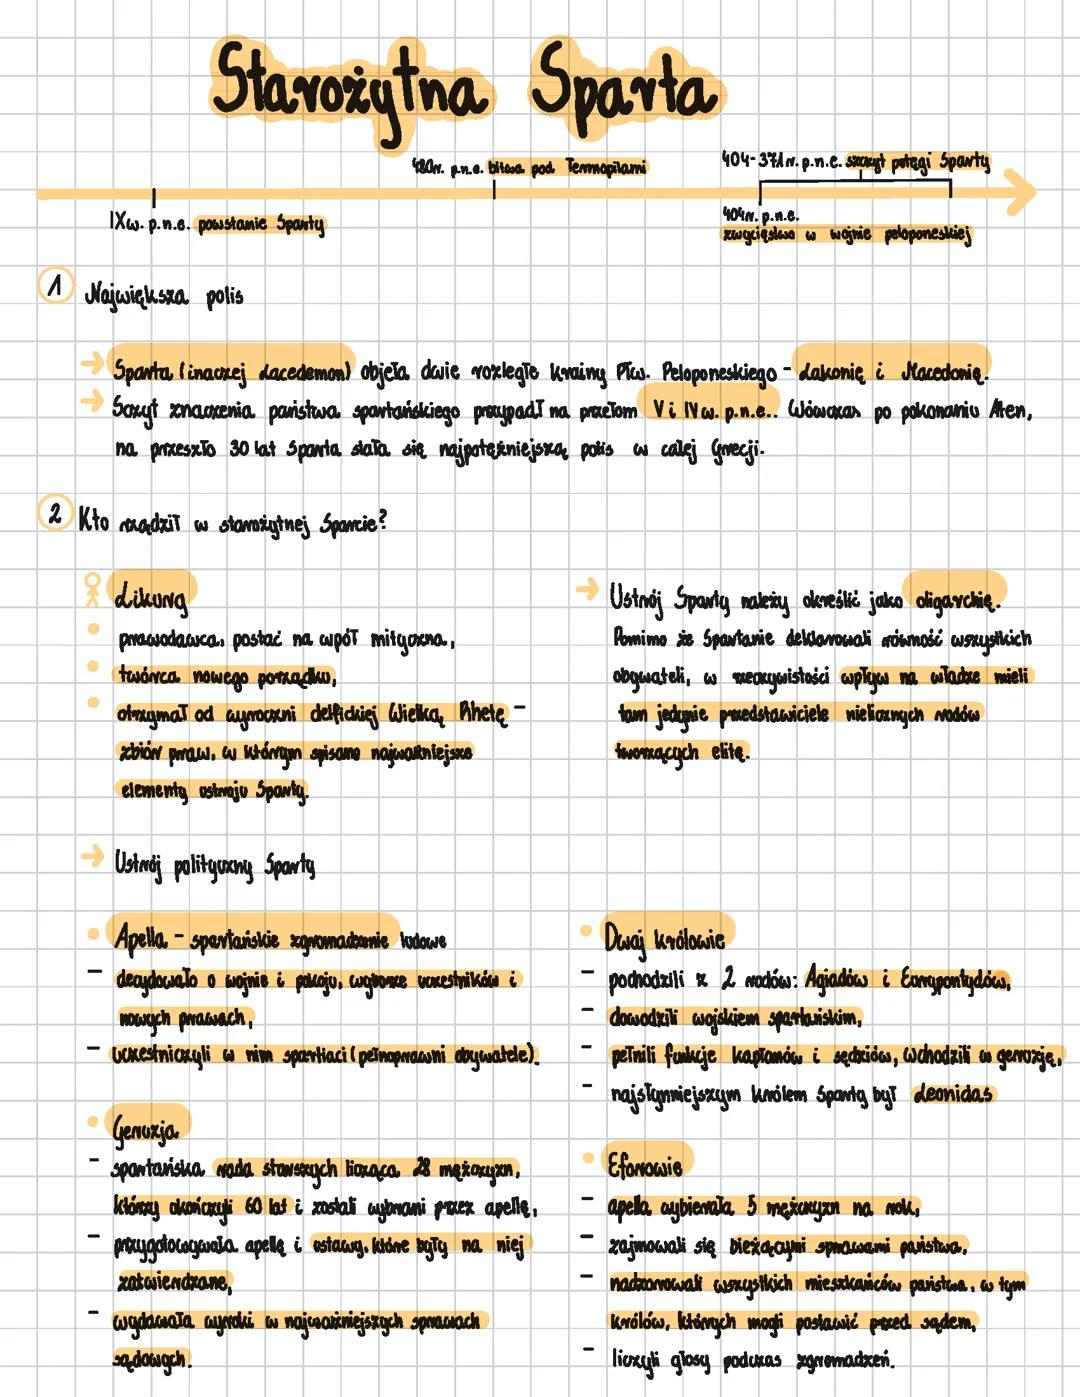 Starożytna Sparta
480r. p.n.e. bitwa pod Termopilami
404-371r. p.n.e. szczyt potęgi Sparty
IXw. p.n.e. powstanie Sparty
404r. p.n.e.
zwycięstwo w wojnie peloponeskiej
1 Największa polis
→ Sparta (inaczej Lacedemon) objęła dwie rozległe krainy Płw. Peloponeskiego - Lakonię i Macedonię.
→ Szczyt znaczenia państwa spartańskiego przypadł na przełom V i IV w. p.n.e.. Wówczas po pokonaniu Aten,
na przeszło 30 lat Sparta stała się najpotężniejszą polis w całej Grecji.
2 Kto rządził w starożytnej Sparcie?
Likurg
• prawodawca, postać na wpół mityczna,
• twórca nowego porządku,
• otrzymał od wyroczni delfickiej Wielką Rhetę -
zbiór praw, w którym spisano najważniejsze
elementy ustroju Sparty.
→ Ustrój Sparty należy określić jako oligarchię.
Pomimo że Spartanie deklarowali równość wszystkich
obywateli, w rzeczywistości wpływ na władzę mieli
tam jedynie przedstawiciele nielicznych rodów
tworzących elitę.
→ Ustrój polityczny Sparty
• Apella - spartańskie zgromadzenie ludowe
- decydowało o wojnie i pokoju, wyborze uczestników i
nowych prawach,
- uczestniczyli w nim spartiaci (pełnoprawni obywatele).
• Geruzja
- spartańska rada starszych licząca 28 mężczyzn,
którzy ukończyli 60 lat i zostali wybrani przez apellę,
- przygotowywała apellę i ustawy, które były na niej
zatwierdzane,
- wydawała wyroki w najważniejszych sprawach
sądowych.
• Dwaj królowie
- pochodzili z 2 rodów: Agiadów i Eurypontydów,
- dowodzili wojskiem spartańskim,
- pełnili funkcje kapłanów i sędziów, wchodzili w geruzję,
- najsłynniejszym królem Sparty był Leonidas
• Eforowie
- apella wybierała 5 mężczyzn na rok,
- zajmowali się bieżącymi sprawami państwa,
- nadzorowali wszystkich mieszkańców państwa, w tym
królów, których mogli postawić przed sądem,
- liczyli głosy podczas zgromadzeń.